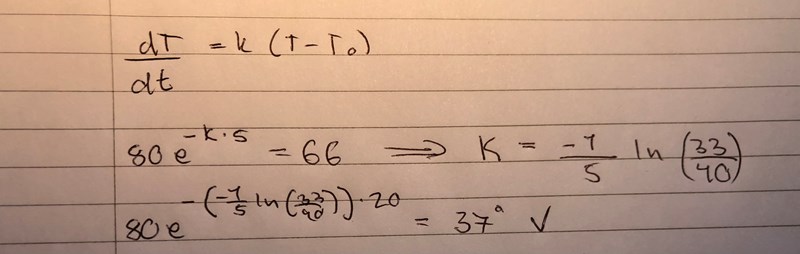 dT/dt = k (T - T₀)
80e^(-k·5) = 66 ⟹ K = -1/5 ln(33/40)
80e^(-(-1/5 ln(33/40))·20) = 37° V